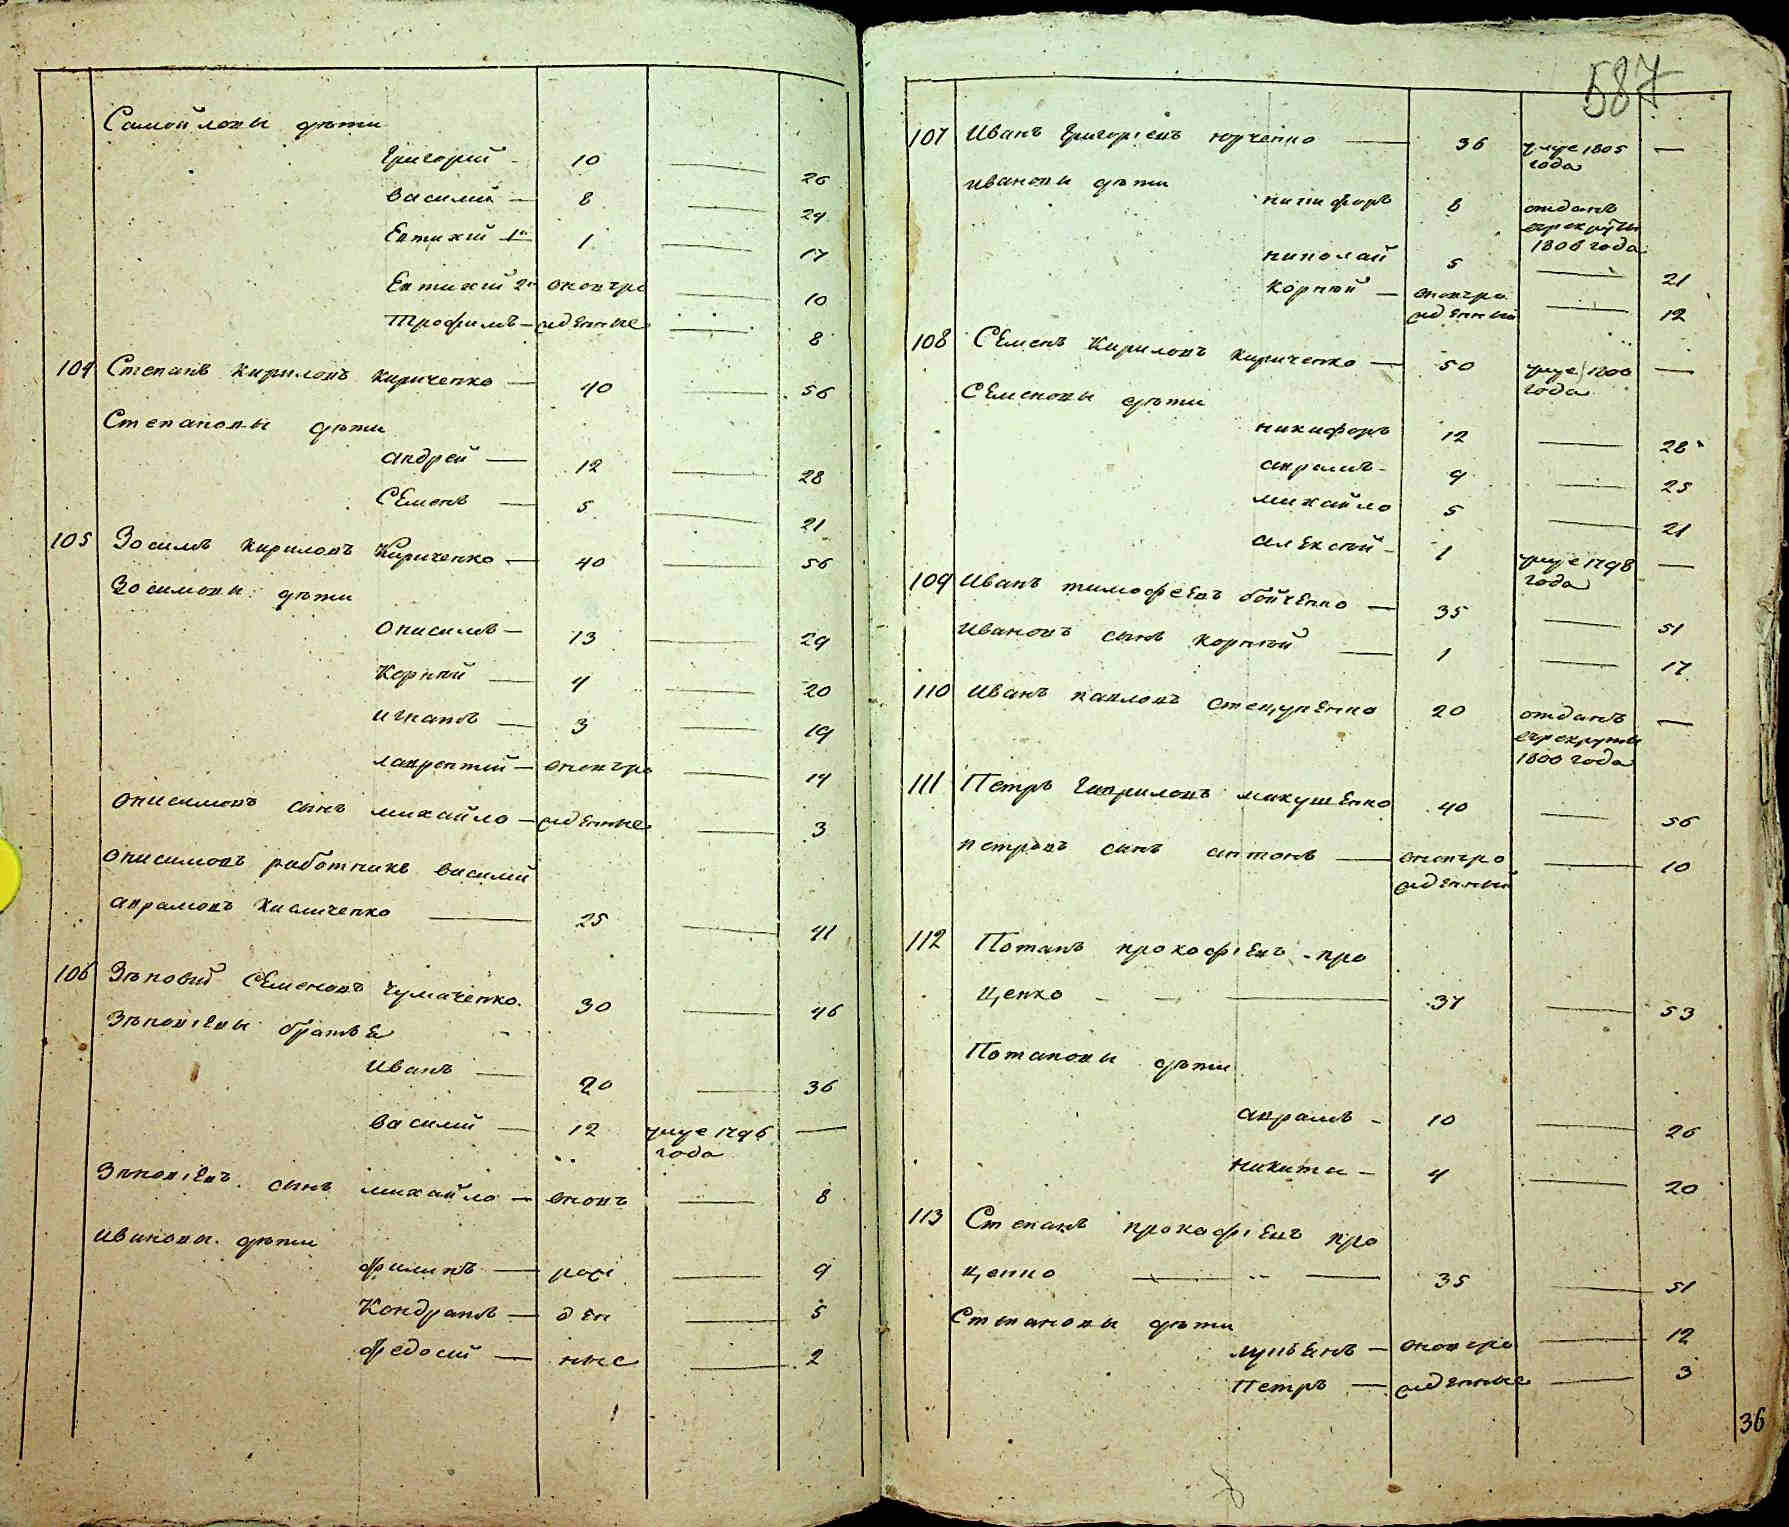 Самойловы дѣти
Григорий 10 — 26
Василий — 8 — 24
Евтихий 1й 1 — 17
Евтихий 2й вновьро — 10
Трофимъ — жденные — 8
104 Степанъ Кириловъ Кириченко — 40 — 56
Степановы дѣти
андрей — 12 — 28
Семенъ — 5 — 21
105 Зосимъ Кириловъ Кириченко — 40 — 56
Зосимовы дѣти
Онисимъ — 13 — 29
Корнѣй — 4 — 20
игнатъ — 3 — 19
лаврентий — вновьро — 14
Онисимовъ сынъ михайло — жденные — 3
Онисимовъ работникъ василий
аврамовъ Кисличенко — 25 — 41
106 Зѣновий Семеновъ Чумаченко 30 — 46
Зѣновіевы братья
Иванъ — 20 — 36
василий — 12 умре 1796 —
года
Зѣновіевъ сынъ михайло — вновъ — 8
ивановы дѣти
филипъ — рож — 9
Кондратъ — ден — 5
федосий — ные — 2
587
107 Иванъ Григоріевъ Юрченко — 36 умре 1805 —
года
ивановы дѣти
никифоръ 8 отданъ
врекруты
1806 года
николай 5 — 21
Корнѣй — вновьро — 12
жденный
108 Семенъ Кириловъ Кириченко — 50 умре 1800 —
года
Семеновы дѣти
никифоръ 12 — 28
аврамъ 9 — 25
михайло 5 — 21
алексѣй 1 умре 1798 —
года
109 Иванъ тимофеевъ бойченко — 35 — 51
Ивановъ сынъ корнѣй — 1 — 17
110 Иванъ павловъ стецуненко 20 отданъ —
врекруты
1800 года
111 Петръ Гавриловъ макушенко 40 — 56
петровъ сынъ антонъ — вновьро — 10
жденный
112 Потапъ прокофіевъ про
ценко — 37 — 53
Потаповы дѣти
аврамъ — 10 — 26
никита — 4 — 20
113 Степанъ прокофіевъ про
ценко — 35 — 51
Степановы дѣти
лукьянъ — вновьро — 12
Петръ — жденные — 3
36